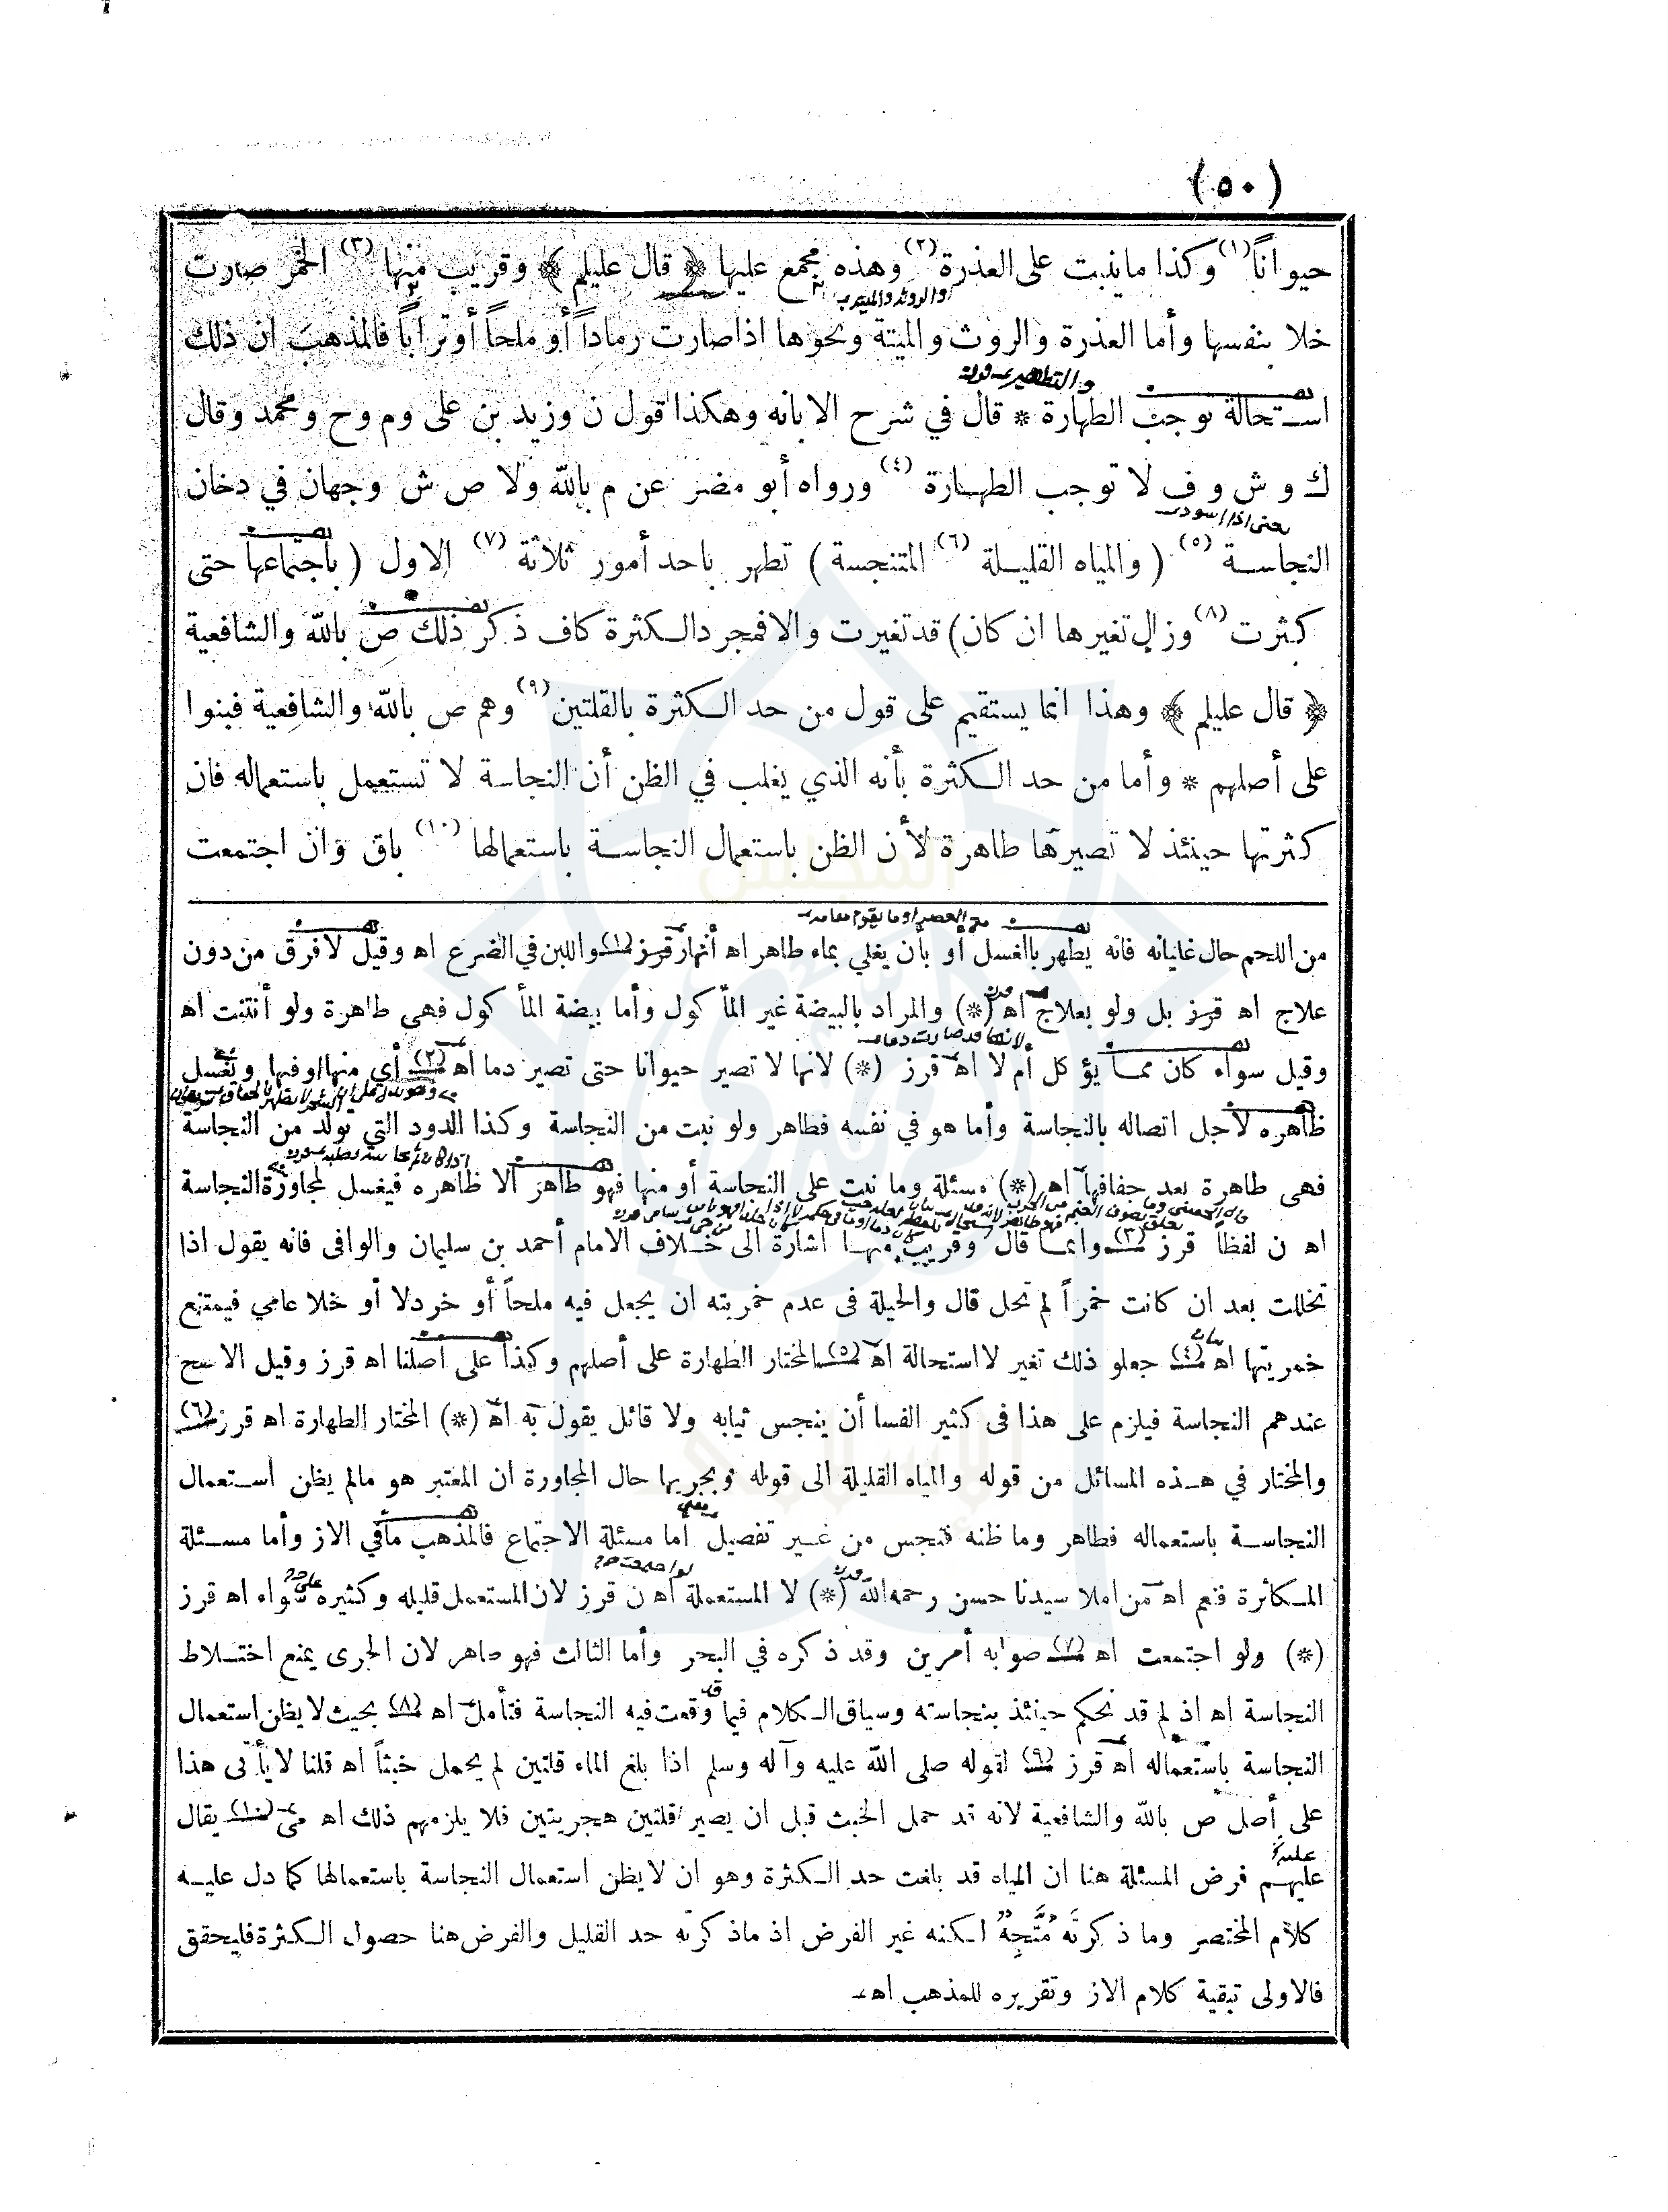 (٥٠)
حيواناً (١) وكذا ما نبت على العذرة (٢) وهذه مجمع عليها ﴿ قال عليلم ﴾ وقريب منها (٣) الخمر صارت
خلا بنفسها وأما العذرة والروث والميتة ونحوها اذا صارت رماداً أو ملحاً أو تراباً فالمذهب ان ذلك
استحالة توجب الطهارة * قال في شرح الابانه وهكذا قول ن وزيد بن على وم وح ومحمد وقال
ك و ش و ف لا توجب الطهارة (٤) ورواه أبو مضر عن م بالله ولا ص ش وجهان في دخان
النجاسة (٥) ( والمياه القليلة (٦) المتنجسة ) تطهر باحد أمور ثلاثة (٧) الاول ( باجتماعها حتى
كثرت (٨) وزال تغيرها ان كان ) قد تغيرت والا فمجرد الكثرة كاف ذكر ذلك ص بالله والشافعية
﴿ قال عليلم ﴾ وهذا انما يستقيم على قول من حد الكثرة بالقلتين (٩) وهم ص بالله والشافعية فبنوا
على أصلهم * وأما من حد الكثرة بأنه الذي يغلب في الظن أن النجاسة لا تستعمل باستعماله فان
كثرتها حينئذ لا تصيرها طاهرة لأن الظن باستعمال النجاسة باستعمالها (١٠) باق وان اجتمعت
من اللحم حال غليانه فانه يطهر بالغسل او بأن يغلي بماء طاهر اه أثمار قرز (١) واللبن في الضرع اه وقيل لا فرق من دون
علاج اه قرز بل ولو بعلاج اه (*) والمراد بالبيضة غير المأكول وأما بيضة المأكول فهي طاهرة ولو أنتنت اه
وقيل سواء كان مما يؤكل أم لا اه قرز (*) لانها لا تصير حيوانا حتى تصير دما اه (٢) أي منها او فيها ويغسل
ظاهره لاجل اتصاله بالنجاسة وأما هو في نفسه فطاهر ولو نبت من النجاسة وكذا الدود التي تولد من النجاسة
فهى طاهرة بعد جفافها اه (*) مسئلة وما نبت على النجاسة أو منها فهو طاهر الا ظاهره فيغسل لمجاورة النجاسة
اه ن لفظا قرز (٣) وانما قال وقريب منها اشارة الى خلاف الامام أحمد بن سليمان والوافى فانه يقول اذا
تخللت بعد ان كانت خمراً لم تحل قال والحيلة فى عدم خمريته ان يجعل فيه ملحاً أو خردلا أو خلا عامي فيمتنع
خمريتها اه (٤) جعلو ذلك تغير لا استحالة اه (٥) المختار الطهارة على أصلهم وكذا على أصلنا اه قرز وقيل الاصح
عندهم النجاسة فيلزم على هذا فى كثير الفسا أن ينجس ثيابه ولا قائل يقول به اه (*) المختار الطهارة اه قرز (٦)
والمختار في هذه المسائل من قوله والمياه القليلة الى قوله وبجريها حال المجاورة ان المعتبر هو مالم يظن استعمال
النجاسة باستعماله فطاهر وما ظنه فنجس من غير تفصيل اما مسئلة الاجتماع فالمذهب مافي الاز وأما مسئلة
المكاثرة فنعم اه من املا سيدنا حسن رحمه الله (*) لا المستعملة اه ن قرز لان المستعمل قليله وكثيره سواء اه قرز
(*) ولو اجتمعت اه (٧) صوابه أمرين وقد ذكره في البحر وأما الثالث فهو طاهر لان الجرى يمنع اختلاط
النجاسة اه اذ لم قد نحكم حينئذ بنجاسته وسياق الكلام فيما وقعت فيه النجاسة فتأمل اه (٨) بحيث لا يظن استعمال
النجاسة باستعماله اه قرز (٩) لقوله صلى الله عليه وآله وسلم اذا بلغ الماء قلتين لم يحمل خبثاً اه قلنا لا يأتى هذا
على أصل ص بالله والشافعية لانه قد حمل الخبث قبل ان يصير قلتين هجريتين فلا يلزمهم ذلك اه مى (١٠) يقال
عليهم فرض المسئلة هنا ان المياه قد بلغت حد الكثرة وهو ان لا يظن استعمال النجاسة باستعمالها كما دل عليه
كلام المختصر وما ذكرته مُتَّجِهٌ لكنه غير الفرض اذ ماذكرته حد القليل والفرض هنا حصول الكثرة فليحقق
فالاولى تبقية كلام الاز وتقريره للمذهب اه